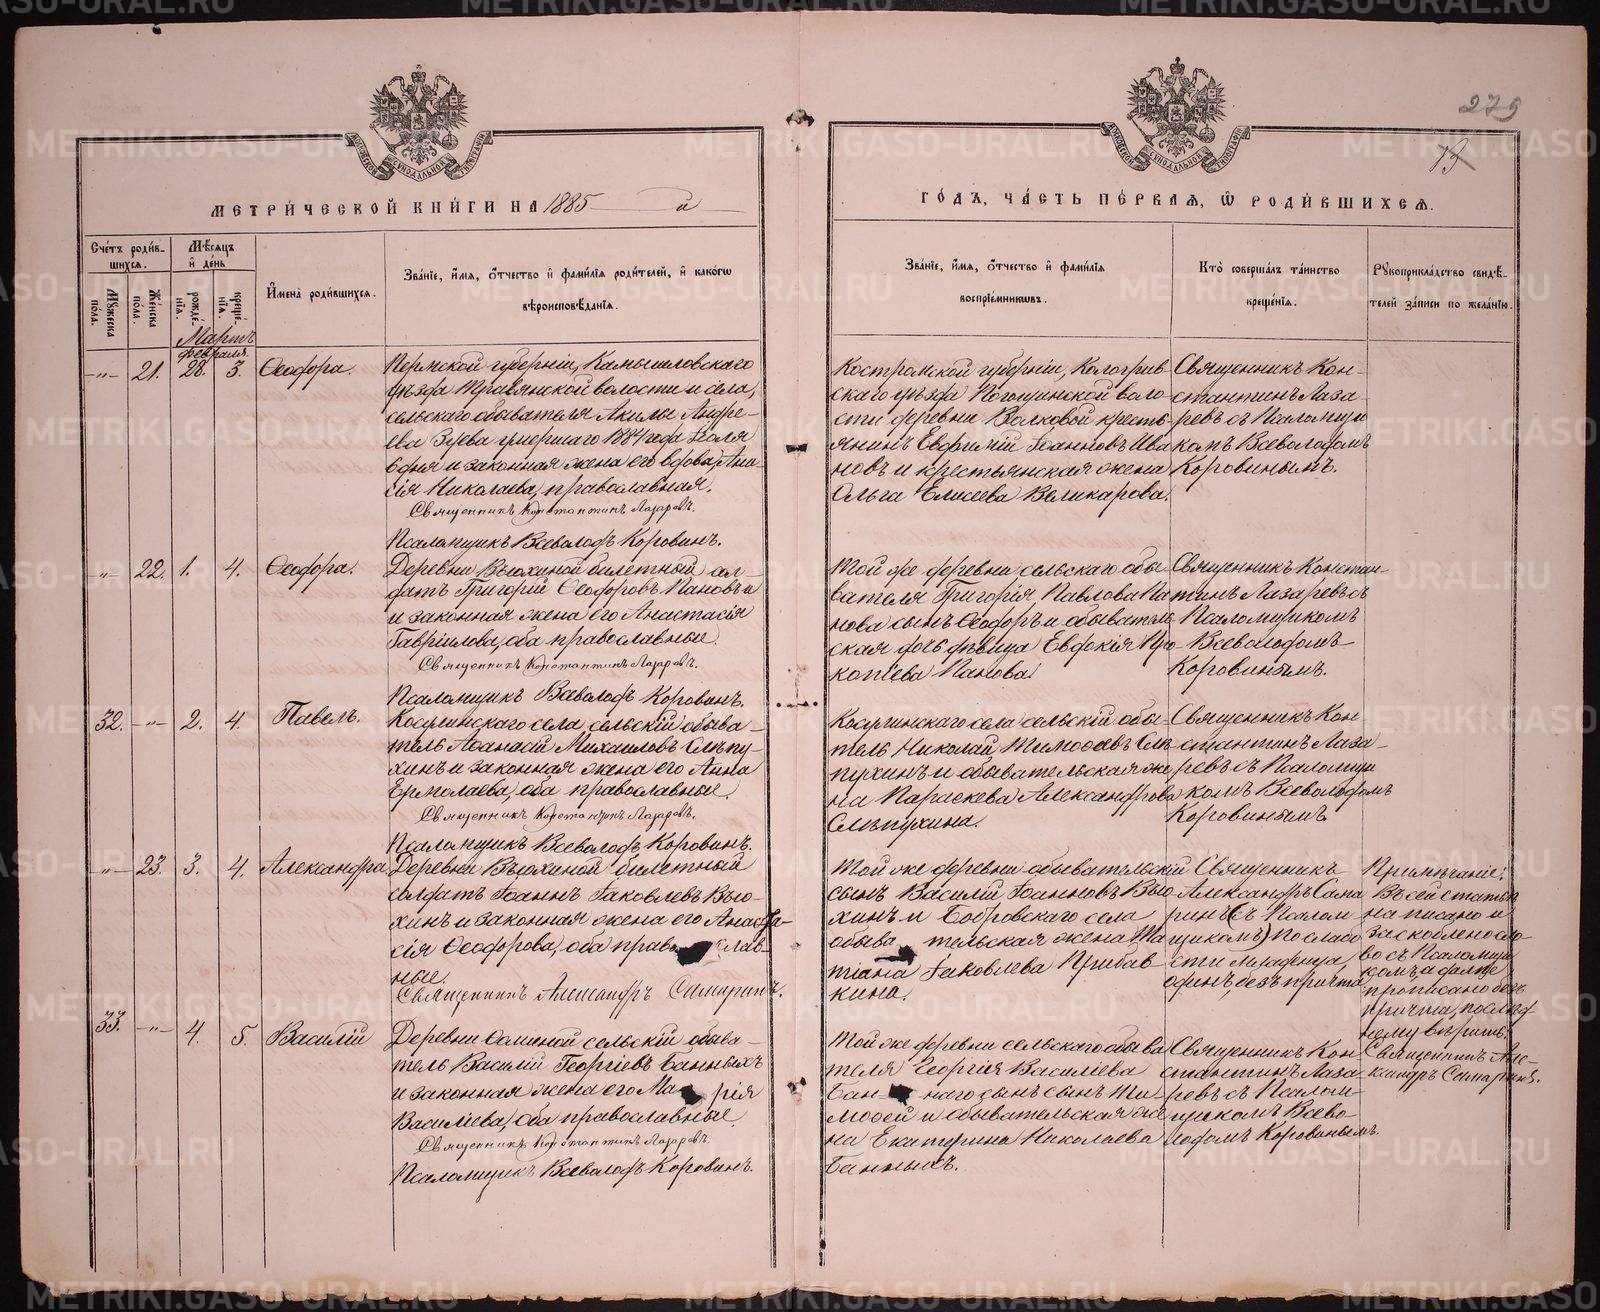 279
13
МЕТРИ́ЧЕСКОЙ КНИ́ГИ НА 1885 й
ГО́ДЪ, ЧА́СТЬ ПЕ́РВАѦ, Ѿ РОДИ́ВШИХСѦ.
Сче́тъ роди́в-
шихсѧ.
Мѣ́сѧцъ
и҆ де́нь
Мꙋ́жеска по́ла.
Же́нска по́ла.
рожде́-
нїѧ.
креще́-
нїѧ.
И҆мена̀ роди́вшихсѧ.
Зва́нїе, и҆́мѧ, ѻ҆́тчество и҆ фами́лїѧ роди́телей, и҆ како́гѡ
вѣроисповѣ́данїѧ.
Зва́нїе, и҆́мѧ, ѻ҆́тчество и҆ фами́лїѧ
воспрїе́мникѡвъ.
Кто̀ соверша́лъ та́инство
креще́нїѧ.
Рꙋкоприкла́дство свидѣ́-
телей за́писи по жела́нїю.
Мартъ
февраля.
-„- 21. 28. 3. Ѳеодора.
Пермской губерніи, Камышловскаго
уѣзда Травянской волости и села,
сельскаго обывателя Акилы Андре-
ева Зуева умершаго 1884 года Іюля
6 дня и законная жена его вдова, Ани-
сія Николаева, православная.
Священникъ Константинъ Лазаревъ.
Псаломщикъ Всеволодъ Коровинъ.
Костромской губерніи, Кологрив-
скаго уѣзда воло-
сти деревни Волковой кресть-
янинъ Евфимій Іоанновъ Ива
новъ и крестьянская жена
Ольга Елисеева Великарова.
Священникъ Кон-
стантинъ Лаза-
ревъ съ Псаломщи
комъ Всеволодомъ
Коровинымъ.
-„- 22. 1. 4. Ѳеодора.
Деревни Вьюхиной билетный сол-
датъ Григорій Ѳеодоровъ Пановъ и
и законная жена его Анастасія
Гавріилова, оба православные.
Священникъ Константинъ Лазаревъ.
Псаломщикъ Всеволодъ Коровинъ.
Той же деревни сельскаго обы-
вателя Григорія Павлова Па
нова сынъ Ѳеодоръ и обыватель
ская дочь дѣвица Евдокія Про-
копіева Панова.
Священникъ Констан-
тинъ Лазаревъ съ
Псаломщикомъ
Всеволодомъ
Коровинымъ.
32. -„- 2. 4. Павелъ.
Косулинскаго села сельскій обыва-
тель Аѳанасій Михаиловъ Слѣпу-
хинъ и законная жена его Анна
Ермолаева, оба православные.
Священникъ Константинъ Лазаревъ.
Псаломщикъ Всеволодъ Коровинъ.
Косулинскаго села сельскій обы-
тель Николай Тимоѳеевъ Слѣ-
пухинъ и обывательская же
на Параскева Александрова
Слѣпухина.
Священникъ Кон-
стантинъ Лаза-
ревъ съ Псаломщи
комъ Всеволодомъ
Коровинымъ.
-„- 23. 3. 4. Александра.
Деревни Вьюхиной билетный
солдатъ Іоаннъ Іаковлевъ Вью-
хинъ и законная жена его Анаста-
сія Ѳеодорова, оба православ-
ные.
Священникъ Александръ Самаринъ.
Той же деревни обывательскій
сынъ Василій Іоанновъ Вью
хинъ и Бобровскаго села
обывательская жена Та
тіана Іаковлева Прибав
кина.
Священникъ
Александръ Сама
ринъ (съ Псалом
щикомъ) по слабо
сти младенца,
одинъ, безъ причта
Примѣчаніе:
Въ сей статьѣ
написано и
заскоблено сло-
во съ Псаломщи
комъ, а далѣе
прописано безъ
причта, послѣд-
нему вѣрить.
Священникъ Але-
ксандръ Самаринъ.
33. -„- 4. 5. Василій
Деревни сельскій обыва-
тель Василій Георгіевъ Банныхъ
и законная жена его Марія
Василіева, оба православные.
Священникъ Константинъ Лазаревъ.
Псаломщикъ Всеволодъ Коровинъ.
Той же деревни сельскаго обыва
теля Георгія Василіева
Баннаго сынъ сынъ Ти-
моѳей и обывательская же
на Екатерина Николаева
Банныхъ.
Священникъ Кон
стантинъ Лаза-
ревъ съ Псалом
щикомъ Всево-
лодомъ Коровинымъ.
METRIKI.GASO-URAL.RU